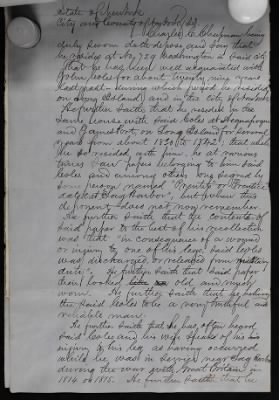 State of New York
City and County of New York SS
Charles C. Chapman being
duly sworn doth depose and say that
he resides at No. 272 Washington in said city
That he has been well acquainted with
John Coles for about twenty nine years
last past - during which period he resided
on Long Island and in the City of New York
He further saith that he resided in the
same house with said Coles at Aquaphogue
and Jamesport, on Long Island for several
years from about 1836 to 1842; that while
he so resided with him, he at various
times saw papers belonging to him said
Coles and among others one signed by
some person named
dated at Sag Harbor, but whom this
deponent does not now remember.
He further saith that the contents of
said paper to the best of his recollection
was that in consequence of a wound
or injury to one of his legs, said Coles
was discharged or released from military
duty. He further saith that said paper
then looked old and much
worn. He further saith that he believes
the said Coles to be a very truthful and
reliable man.
He further saith that he has often heard
said Coles and his wife speak of his
injury to his leg as having occurred
while he was in service near Sag Harbor
during the war with Great Britain in
1814 or 1815. He further saith that he